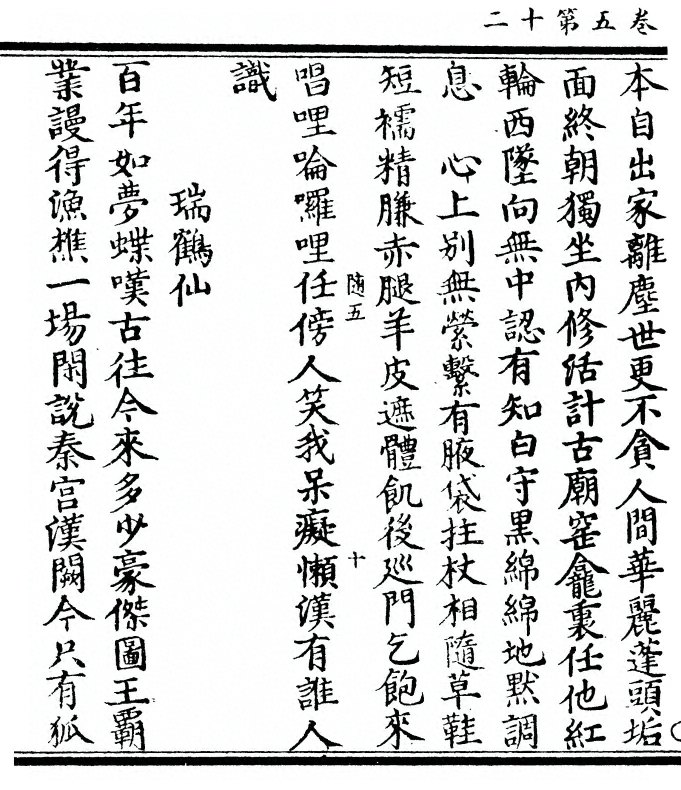 卷五第十二
本自出家離塵世更不貪人間華麗蓬頭垢
面終朝獨坐內修活計古廟窑龕裏任他紅
輪西墜向無中認有知白守黑綿綿地默調
息　心上別無縈繫有腋袋拄杖相隨草鞋
短襦精膁赤腿羊皮遮體飢後廵門乞飽來
唱哩唥囉哩任傍人笑我呆癡懶漢有誰人
隨五
十
識
瑞鶴仙
百年如夢蝶嘆古往今來多少豪傑圖王霸
業謾得漁樵一場閑說秦宮漢闕今只有狐